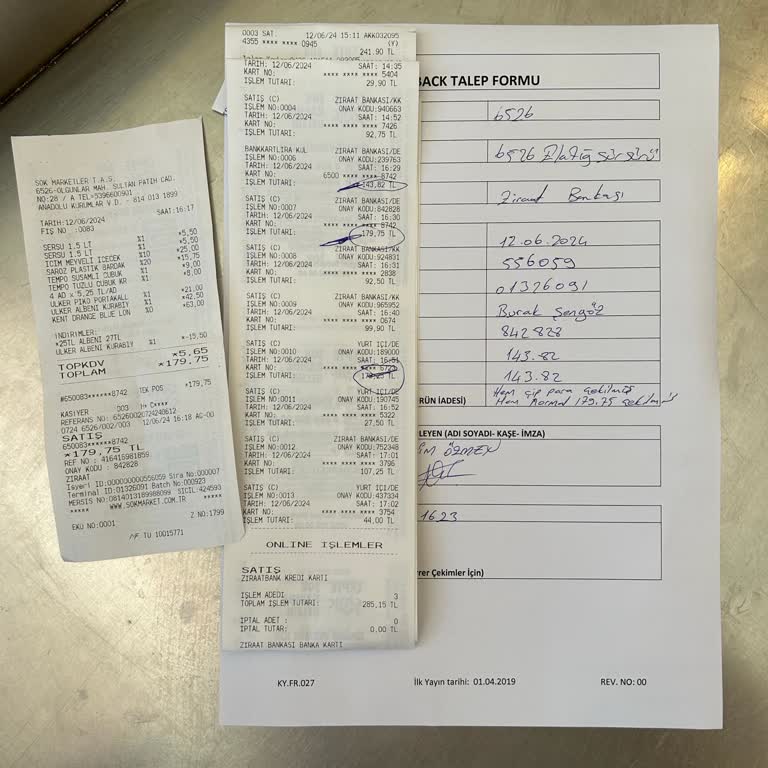 ŞOK MARKETLER T.A.S.
6526-OLGUNLAR MAH. SULTAN FATİH CAD.
NO:28 / A TEL=5396600901
ANADOLU KURUMLAR V.D. - 814 013 1899
TARİH:12/06/2024 SAAT:16:17
FİŞ NO :0083
SERSU 1.5 LT %1 *5,50
SERSU 1.5 LT %1 *5,50
ICIM MEYVELI ICECEK %10 *25,00
SAROZ PLASTIK BARDAK %20 *15,75
TEMPO SUSAMLI CUBUK %1 *9,00
TEMPO TUZLU CUBUK KR %1 *8,00
4 AD x 5,25 TL/AD
ULKER PIKO PORTAKALL %1 *21,00
ULKER ALBENI KURABIY %1 *42,50
KENT ORANGE BLUE LON %1 *63,00
İNDİRİMLER:
*25TL ALBENI 27TL
ULKER ALBENI KURABIY %1 *-15,50
TOPKDV *5,65
TOPLAM *179,75
#650083******8742 TEK POS *179,75
KASİYER 003
REFERANS NO: 6526002072424B612
0724 6526/002/003 12/06/24 16:18 AC-00
SATIŞ
650083******8742
*179,75 TL
REF NO : 416416981859
ONAY KODU : 842828
ZIRAAT
Isyeri ID:000000000556059 Sira No:000007
Terminal ID:01326091 Batch No:000923
MERSIS NO:0814013189988089 SICIL:424593
***** WWW.SOKMARKET.COM.TR *****
EKU NO:0001 Z NO:1799
MF TU 10015771
0003 SATI. 12/06/24 15:11 AKK032095
4355 **** **** 0945 (Y)
241.90 TL
TARİH: 12/06/2024 SAAT: 14:35
KART NO: **** **** **** 5404
İŞLEM TUTARI: 29,90 TL
SATIŞ (C) ZIRAAT BANKASI/KK
İŞLEM NO:0004 ONAY KODU:940663
TARİH: 12/06/2024 SAAT: 14:52
KART NO: **** **** **** 7426
İŞLEM TUTARI: 92,75 TL
BANKKARTLIRA KUL ZIRAAT BANKASI/DE
İŞLEM NO:0006 ONAY KODU:239763
TARİH: 12/06/2024 SAAT: 16:29
KART NO: 6500 **** **** 8742
İŞLEM TUTARI: 143,82 TL
SATIŞ (C) ZIRAAT BANKASI/DE
İŞLEM NO:0007 ONAY KODU:842828
TARİH: 12/06/2024 SAAT: 16:30
KART NO: **** **** **** 8742
İŞLEM TUTARI: 179,75 TL
SATIŞ (C) ZIRAAT BANKASI/KK
İŞLEM NO:0008 ONAY KODU:924831
TARİH: 12/06/2024 SAAT: 16:31
KART NO: **** **** **** 2838
İŞLEM TUTARI: 92,50 TL
SATIŞ (C) ZIRAAT BANKASI/KK
İŞLEM NO:0009 ONAY KODU:965952
TARİH: 12/06/2024 SAAT: 16:40
KART NO: **** **** **** 0674
İŞLEM TUTARI: 99,90 TL
SATIŞ (C) YURT İÇİ/DE
İŞLEM NO:0010 ONAY KODU:189000
TARİH: 12/06/2024 SAAT: 16:51
KART NO: **** **** ****
İŞLEM TUTARI: TL
SATIŞ (C) YURT İÇİ/DE
İŞLEM NO:0011 ONAY KODU:190745
TARİH: 12/06/2024 SAAT: 16:52
KART NO: **** **** **** 5322
İŞLEM TUTARI: 27,50 TL
SATIŞ (C) YURT İÇİ/DE
İŞLEM NO:0012 ONAY KODU:752348
TARİH: 12/06/2024 SAAT: 17:01
KART NO: **** **** **** 3796
İŞLEM TUTARI: 107,25 TL
SATIŞ (C) YURT İÇİ/DE
İŞLEM NO:0013 ONAY KODU:437334
TARİH: 12/06/2024 SAAT: 17:02
KART NO: **** **** **** 3754
İŞLEM TUTARI: 44,00 TL
ONLINE İŞLEMLER
SATIŞ
ZIRAATBANK KREDI KARTI
İŞLEM ADEDİ 3
TOPLAM İŞLEM TUTARI: 285,15 TL
İPTAL ADET : 0
İPTAL TUTAR: 0,00 TL
ZIRAAT BANKASI BANKA KARTI
BACK TALEP FORMU
6526
6526 Elazığ Sürsürü
Ziraat Bankası
12.06.2024
556059
01326091
Burak Şengöz
842828
143.82
143.82
RÜN İADESİ)
Hem çip para çekilmiş
Hem Normal 179.75 çekilmiş
LEYEN (ADI SOYADI- KAŞE- İMZA)
İM ÖZMEN
1623
rer Çekimler İçin)
KY.FR.027 İlk Yayın tarihi: 01.04.2019 REV. NO: 00